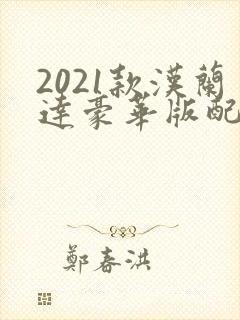 2021款漢蘭
達豪華版配
鄭春洪